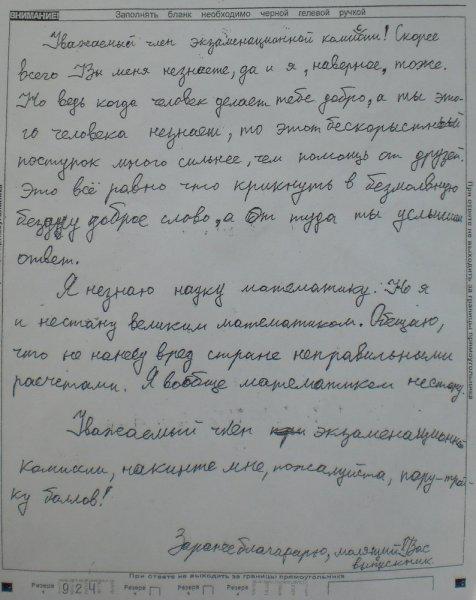 ВНИМАНИЕ! Заполнять бланк необходимо черной гелевой ручкой
Уважаемый член экзаменационной комисии! Скорее
всего Вы меня незнаете, да и я, наверное, тоже.
Но ведь когда человек делает тебе добро, а ты это-
го человека незнаеш, то этот бескорыстный
поступок много сильнее, чем помощь от друзей.
Это всё равно что крикнуть в безмолвную
бездну доброе слово, а от туда ты услышиш
ответ.
Я незнаю науку математику. Но я
и нестану великим математиком. Обещаю,
что не нанесу вред стране неправильными
расчетами. Я вообще математиком нестану.
Уважаемый член экзаменационной
комиссии, накинте мне, пожалуйста, пару-трой
ку баллов!
Заранееблагодарю, молящий Вас
выпускник
При ответе не выходить за границы прямоугольника
Резерв 924 Резерв Резерв Резерв
При ответе не выходить за границы прямоугольника